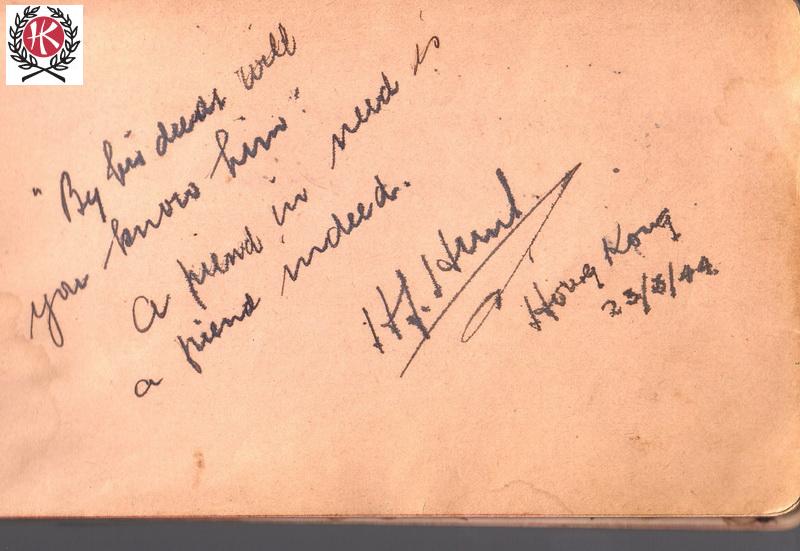 HK
"By his deeds will
you know him".
A friend in need is
a friend indeed.
H.J. Hunt.
Hong Kong
23/3/44